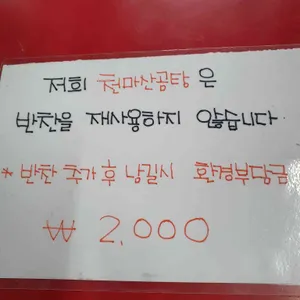 저희 천마산곰탕은
반찬을 재사용하지 않습니다
* 반찬 추가 후 남길시 환경부담금
₩ 2,000